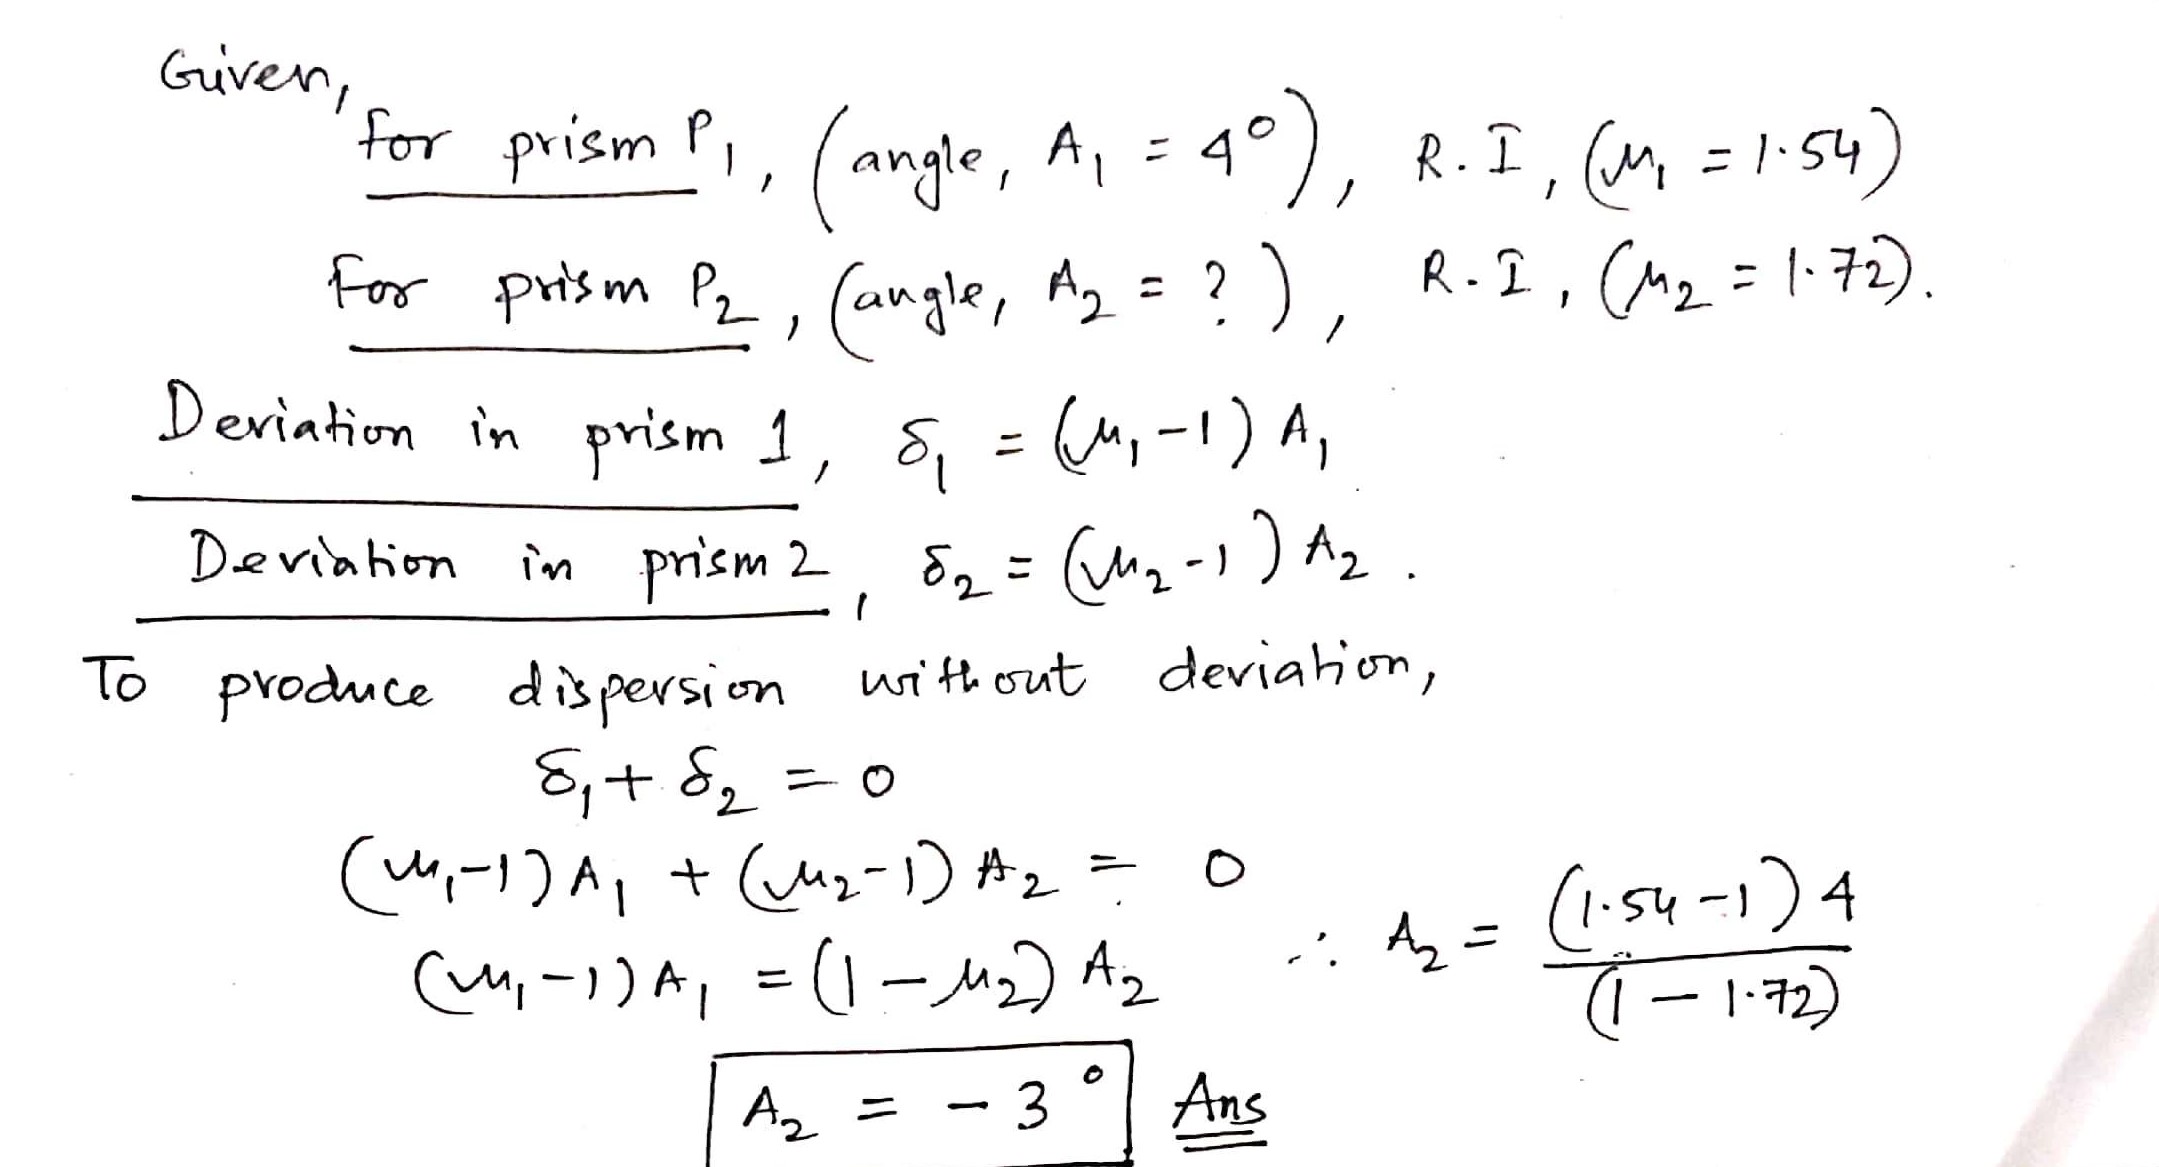 Given,
for prism P₁, (angle, A₁ = 4°), R.I, (μ₁ = 1.54)
For prism P₂, (angle, A₂ = ?), R.I, (μ₂ = 1.72).
Deviation in prism 1, δ₁ = (μ₁-1) A₁
Deviation in prism 2, δ₂ = (μ₂-1) A₂.
To produce dispersion without deviation,
δ₁ + δ₂ = 0
(μ₁-1) A₁ + (μ₂-1) A₂ = 0
(μ₁-1) A₁ = (1 - μ₂) A₂
∴ A₂ = (1.54-1) 4 / (1 - 1.72)
A₂ = - 3° Ans